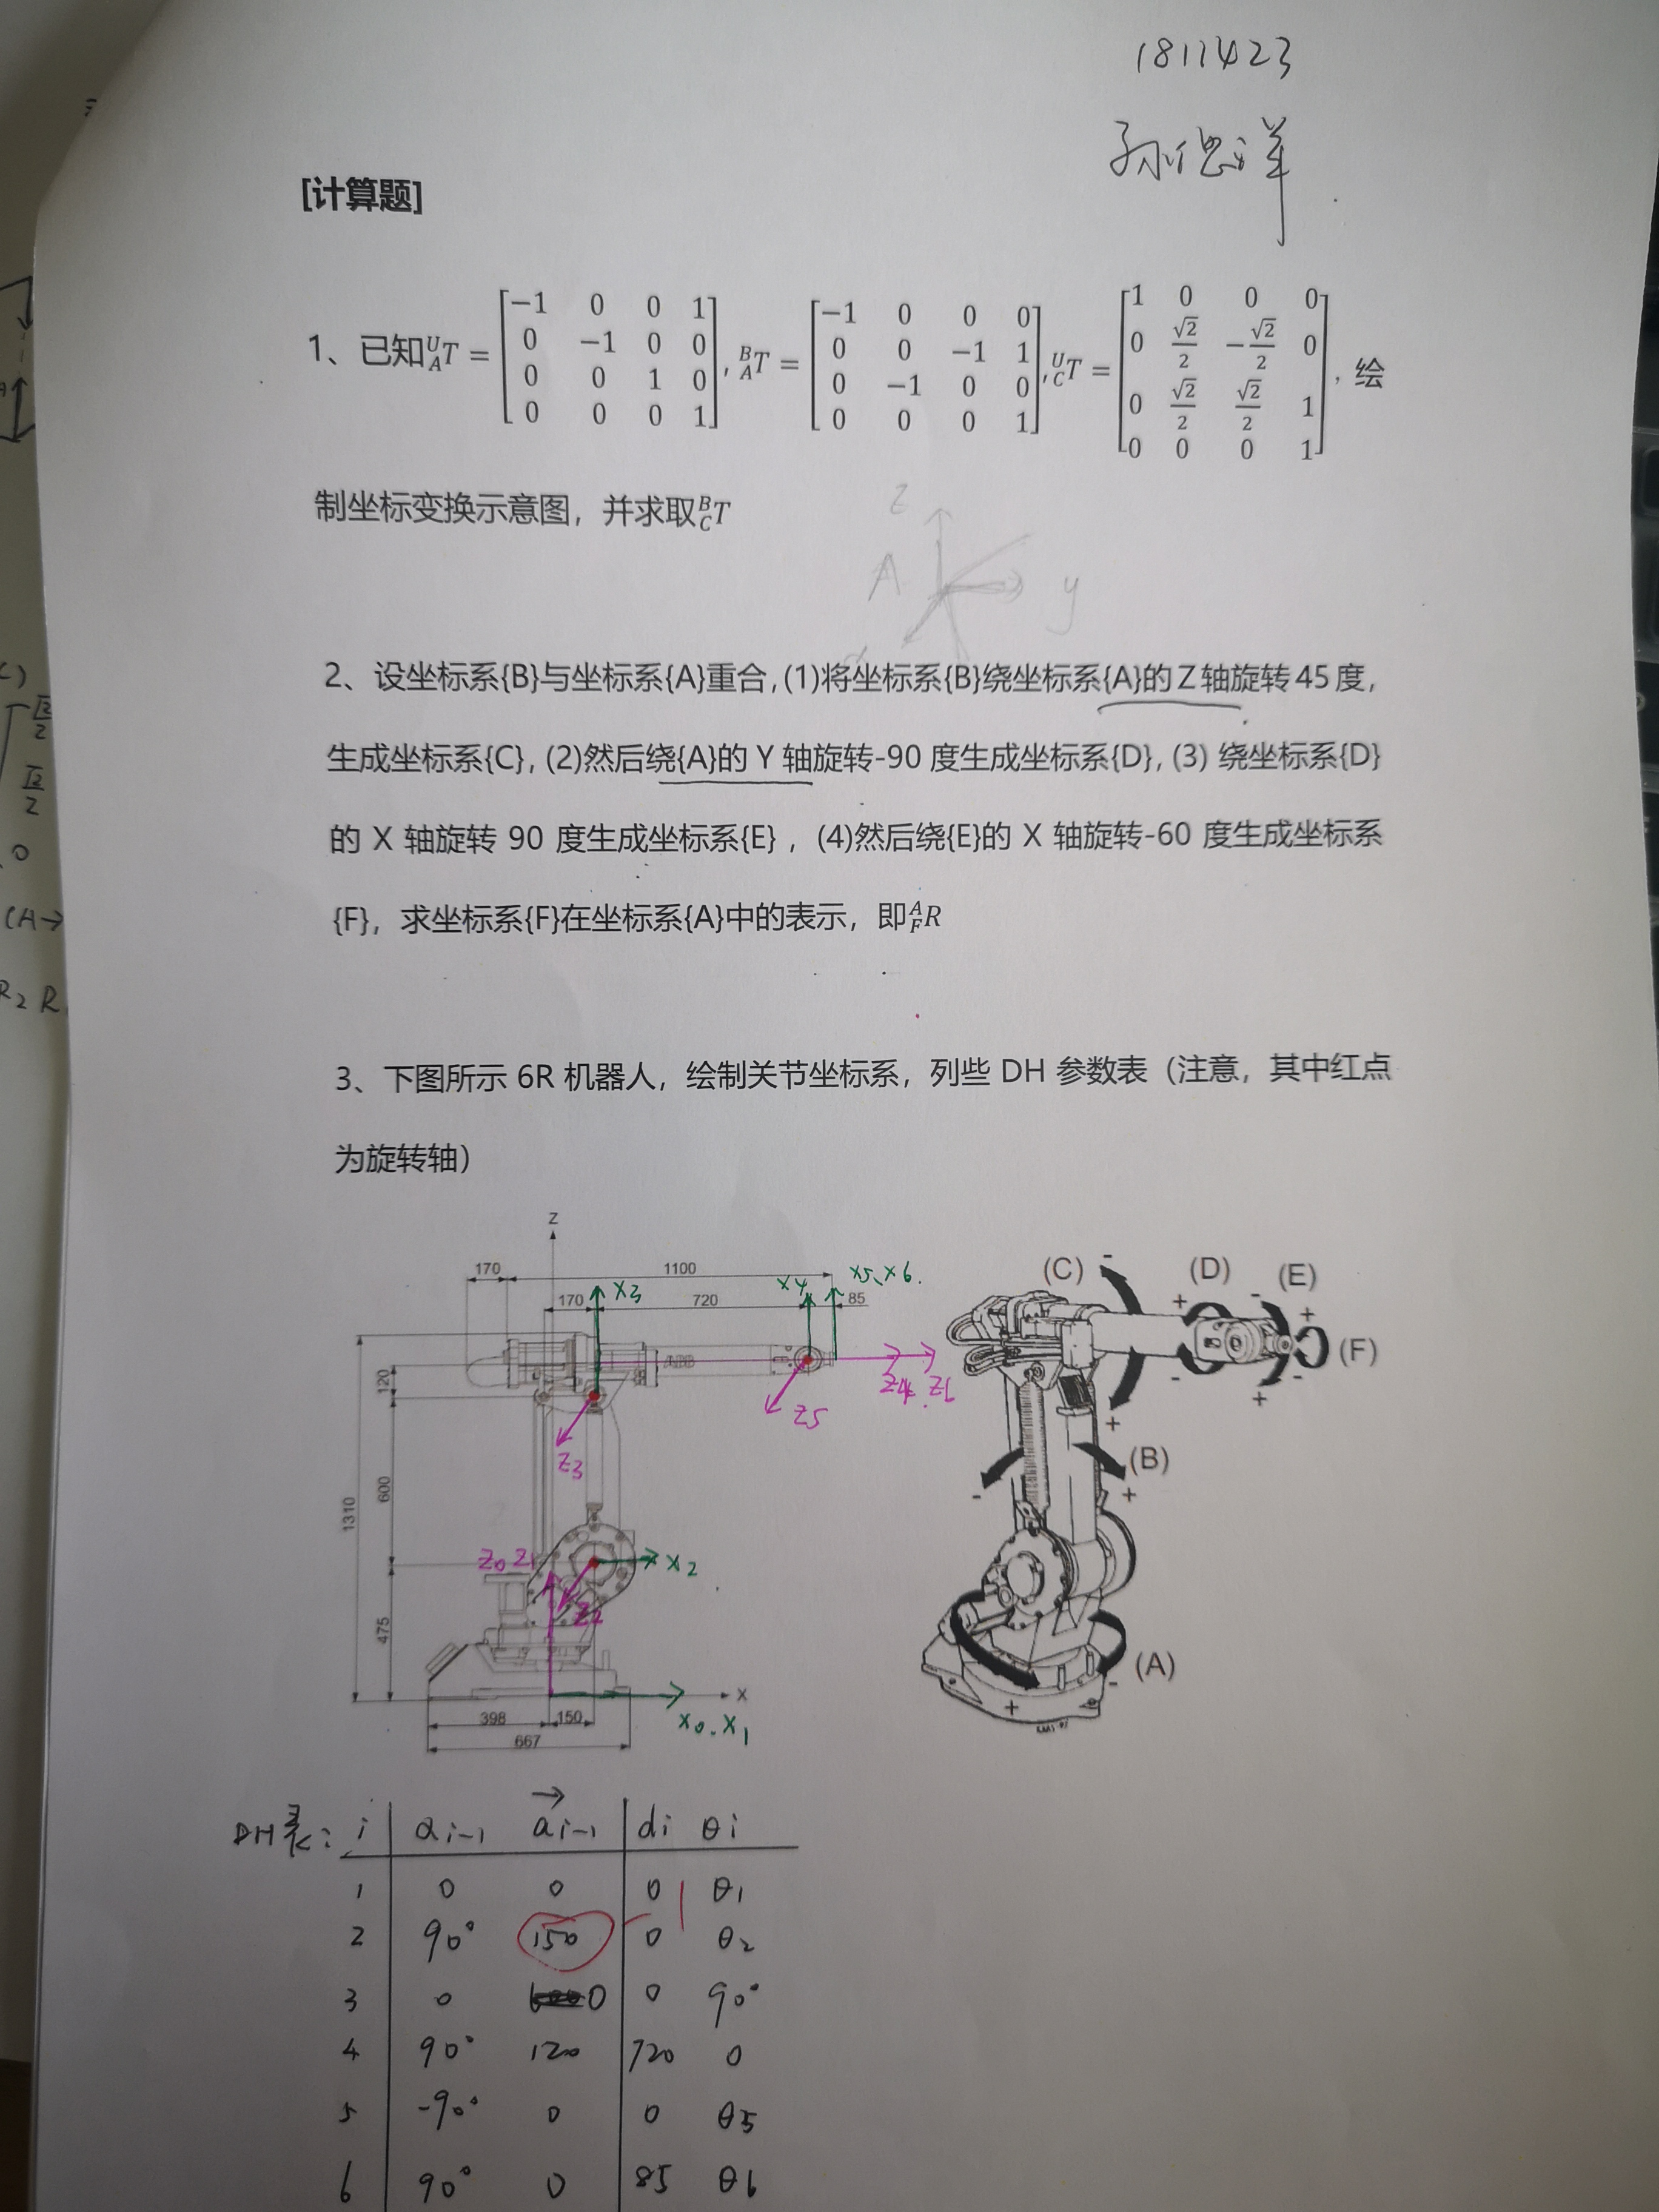 1811423
[计算题]
1、已知 ᵁ_A T = [−1 0 0 1; 0 −1 0 0; 0 0 1 0; 0 0 0 1], ᴮ_A T = [−1 0 0 0; 0 0 −1 1; 0 −1 0 0; 0 0 0 1], ᵁ_C T = [1 0 0 0; 0 √2/2 −√2/2 0; 0 √2/2 √2/2 1; 0 0 0 1], 绘
制坐标变换示意图，并求取 ᴮ_C T
z
A
y
2、设坐标系{B}与坐标系{A}重合, (1)将坐标系{B}绕坐标系{A}的 Z 轴旋转 45 度,
生成坐标系{C}, (2)然后绕{A}的 Y 轴旋转-90 度生成坐标系{D}, (3) 绕坐标系{D}
的 X 轴旋转 90 度生成坐标系{E} , (4)然后绕{E}的 X 轴旋转-60 度生成坐标系
{F}，求坐标系{F}在坐标系{A}中的表示，即 ᴬ_F R
3、下图所示 6R 机器人，绘制关节坐标系，列些 DH 参数表（注意，其中红点
为旋转轴）
Z
170 1100
170 720 85
x3 x4 x5、x6.
120
600
475
1310
ABB
z3
z5
z4. z6
z0 z1
x2
z2
X
x0. x1
398 150
667
(C) -
+
(D) +
-
(E) -
+
+
-
(F)
(B)
-
+
(A)
+
-
DH表: i α i-1 a i-1 di θi
1 0 0 0 θ1
2 90° 150 0 θ2
3 0 0 0 90°
4 90° 120 720 0
5 -90° 0 0 θ5
6 90° 0 85 θ6
√2/2
√2/2
0
(A→
R2 R